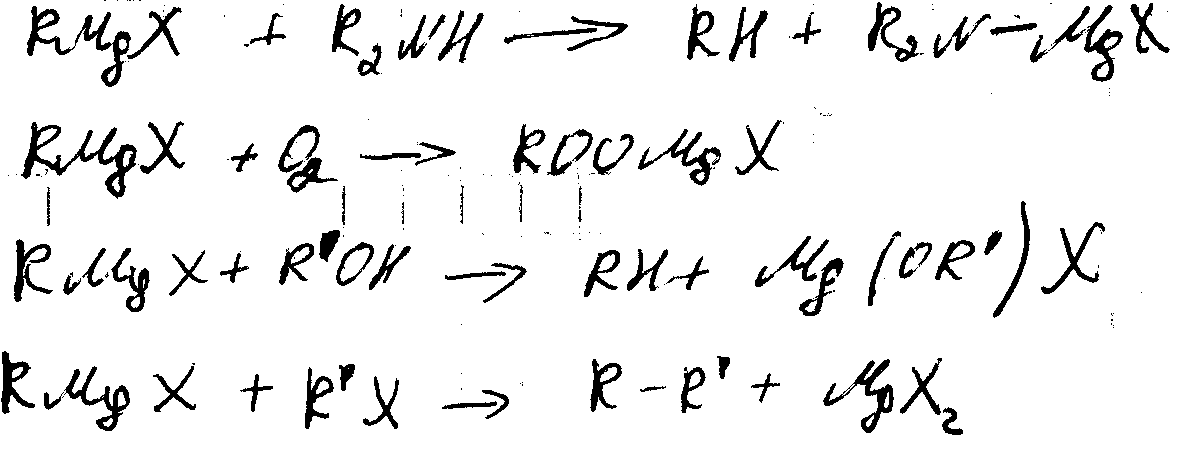 RMgX + R₂NH ⟶ RH + R₂N−MgX
RMgX + O₂ → ROOMgX
RMgX + R'OH → RH + Mg(OR')X
RMgX + R'X → R−R' + MgX₂